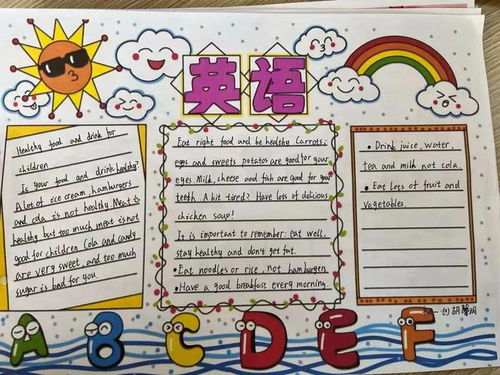 英语
Healthy food and drink for
children
Is your food and drink healthy?
A lot of ice cream, hamburgers
and cola is not healthy. Meat is
healthy but too much meat is not
good for children. Cola and candy
are very sweet, and too much
sugar is bad for you.
Eat right food and be healthy. Carrots,
eggs and sweets potatos are good for your
eyes. Milk, cheese and fish are good for your
teeth. A bit tired? Have lots of delicious
chicken soup!
It is important to remember: eat well,
stay healthy and don't get fat.
• Eat noodles or rice, not hamburgen.
• Have a good breakfast every morning.
• Drink juice, water,
tea and milk not cola.
• Eat lots of fruit and
vegetables
A B C D E F